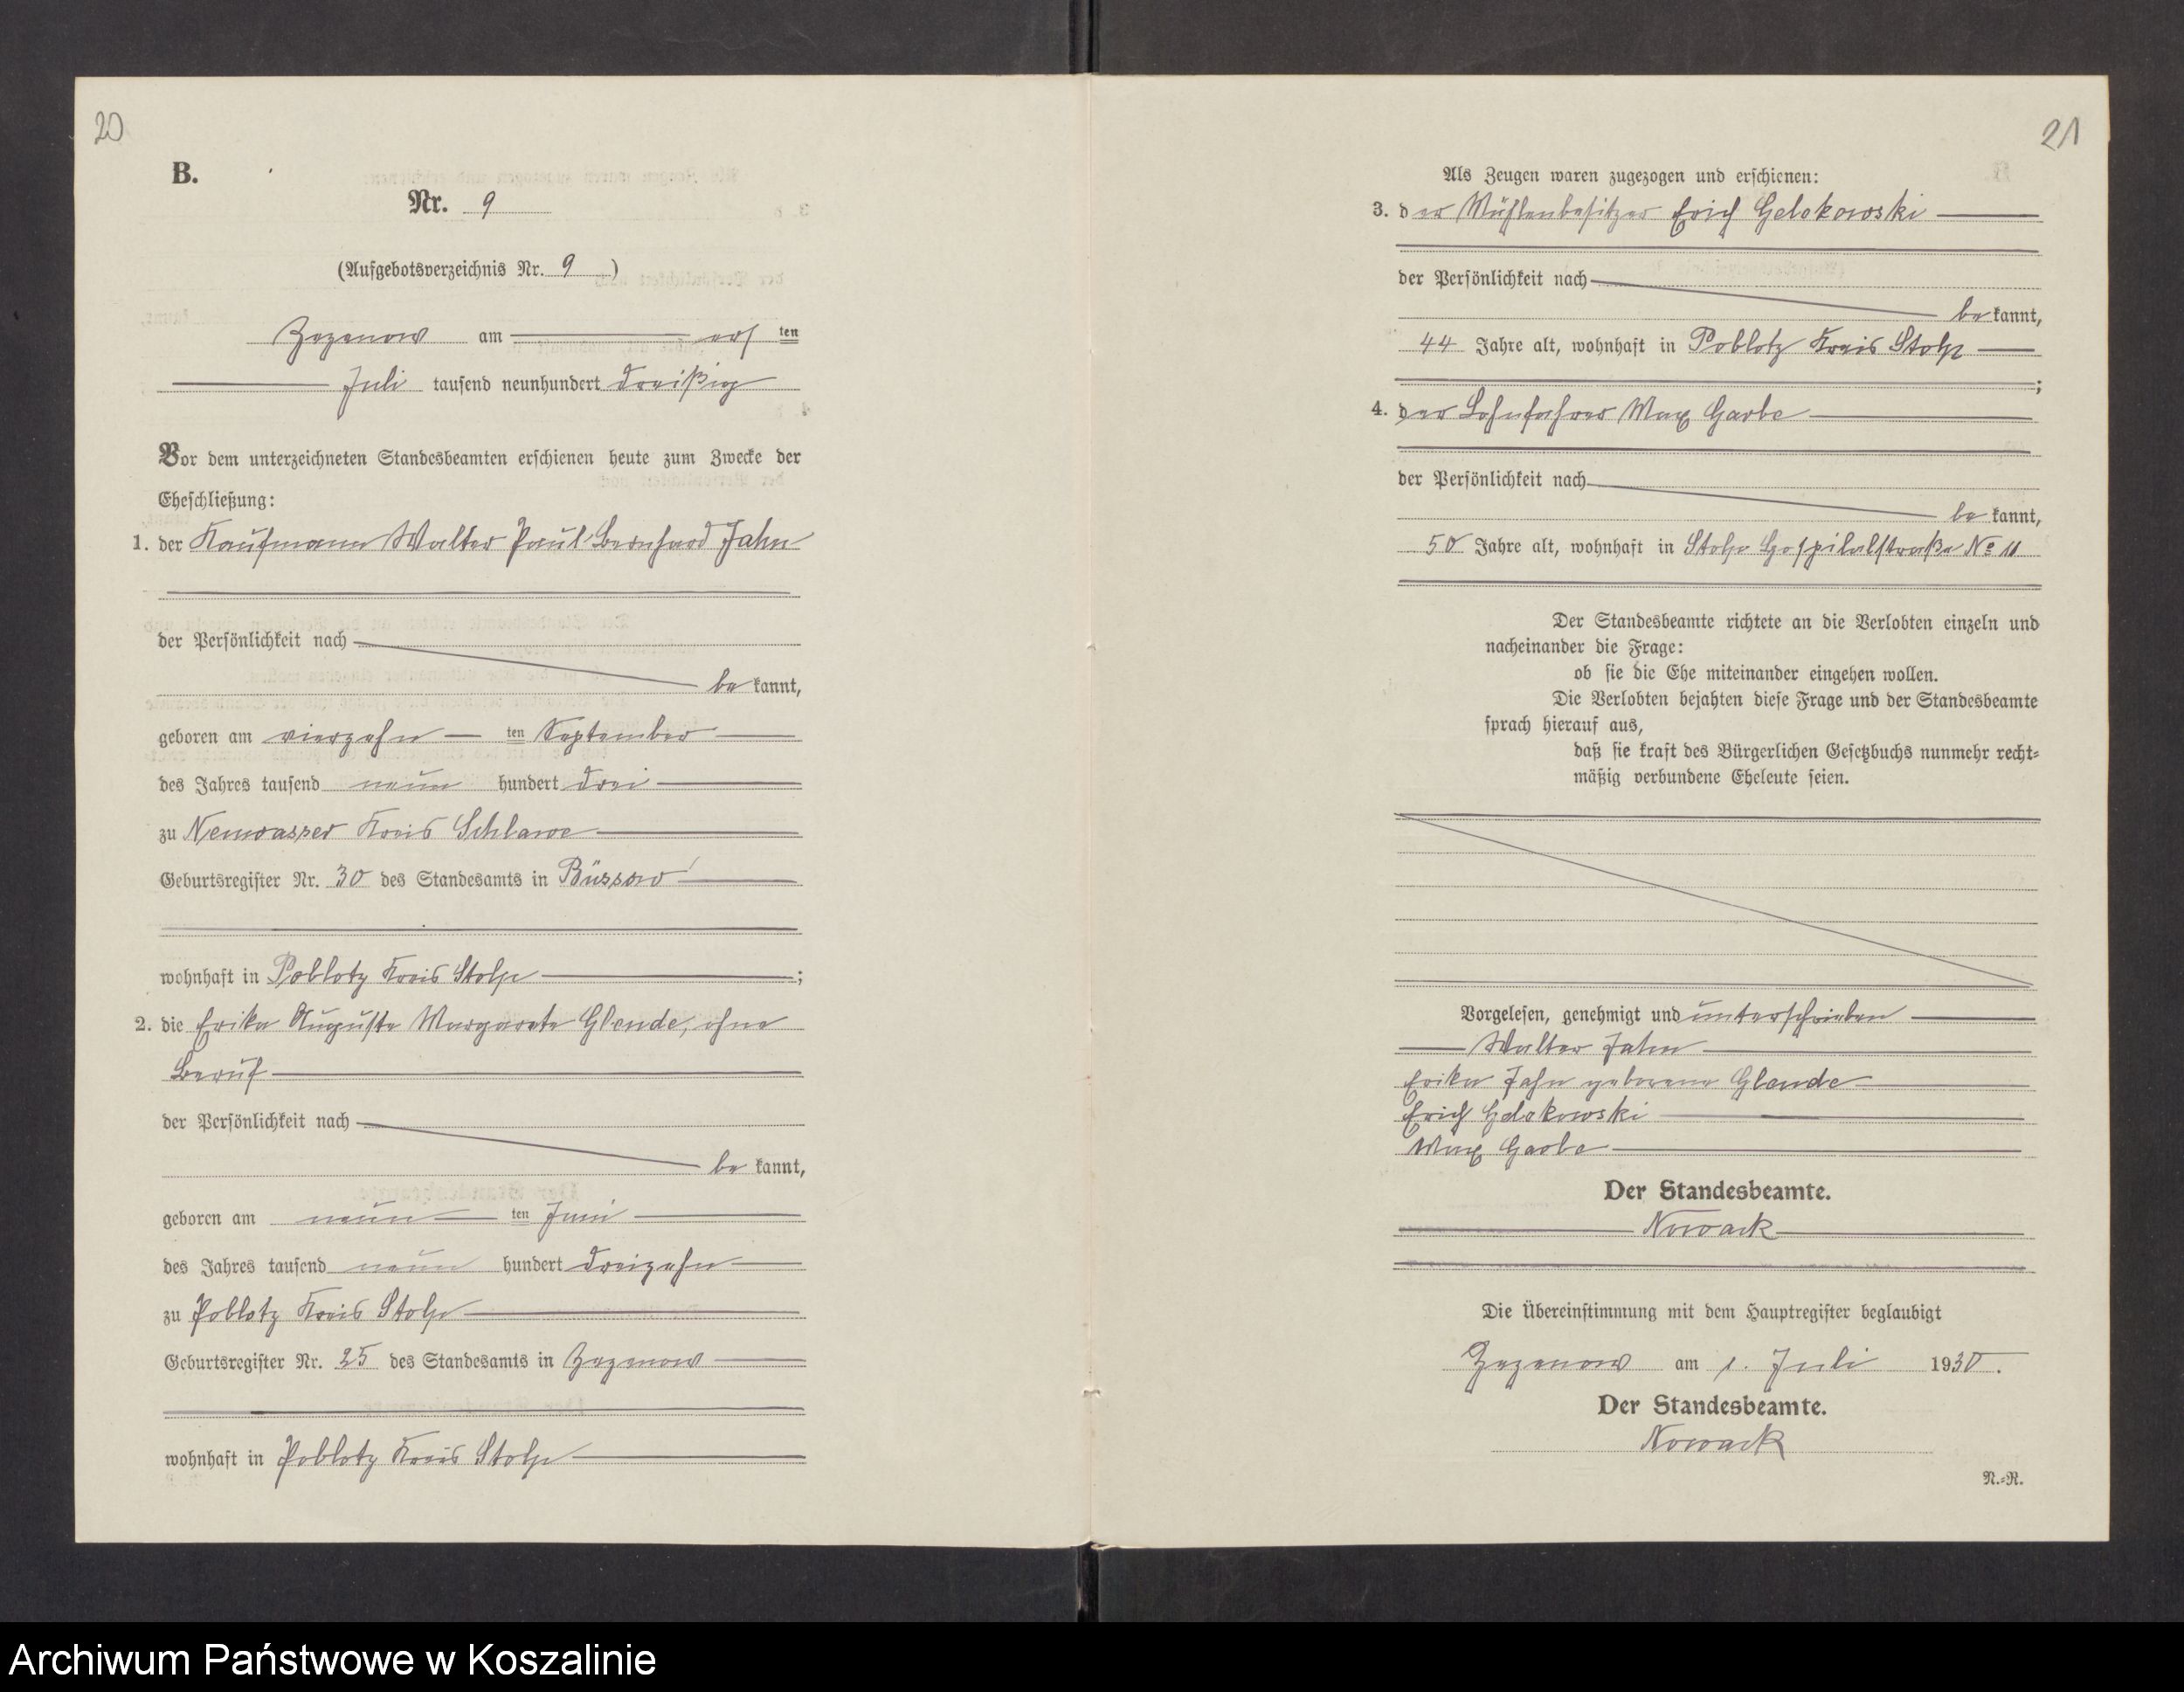 20
B.
Nr. 9
(Aufgebotsverzeichnis Nr. 9)
Zezenow am ersten
Juli tausend neunhundert dreißig
Vor dem unterzeichneten Standesbeamten erschienen heute zum Zwecke der
Eheschließung:
1. der Kaufmann Walter Paul Bernhard Jahn
der Persönlichkeit nach
bekannt,
geboren am vierzehn ten September
des Jahres tausend neun hundert drei
zu Neuwasser Kreis Schlawe
Geburtsregister Nr. 30 des Standesamts in Büssow
wohnhaft in Poblotz Kreis Stolp;
2. die Erika Auguste Margarete Glende, ohne
Beruf
der Persönlichkeit nach
bekannt,
geboren am neun ten Juni
des Jahres tausend neun hundert dreizehn
zu Poblotz Kreis Stolp
Geburtsregister Nr. 25 des Standesamts in Zezenow
wohnhaft in Poblotz Kreis Stolp
21
Als Zeugen waren zugezogen und erschienen:
3. der Mühlenbesitzer Erich
der Persönlichkeit nach
bekannt,
44 Jahre alt, wohnhaft in Poblotz Kreis Stolp
;
4. der Lohnfahrer Max Garbe
der Persönlichkeit nach
bekannt,
50 Jahre alt, wohnhaft in Stolp Hospitalstraße No 11
Der Standesbeamte richtete an die Verlobten einzeln und
nacheinander die Frage:
ob sie die Ehe miteinander eingehen wollen.
Die Verlobten bejahten diese Frage und der Standesbeamte
sprach hierauf aus,
daß sie kraft des Bürgerlichen Gesetzbuchs nunmehr recht-
mäßig verbundene Eheleute seien.
Vorgelesen, genehmigt und unterschrieben
Walter Jahn
Erika Jahn geborene Glende
Erich
Max Garbe
Der Standesbeamte.
Nowack
Die Übereinstimmung mit dem Hauptregister beglaubigt
Zezenow am 1. Juli 1930.
Der Standesbeamte.
Nowack
N.-R.
Archiwum Państwowe w Koszalinie